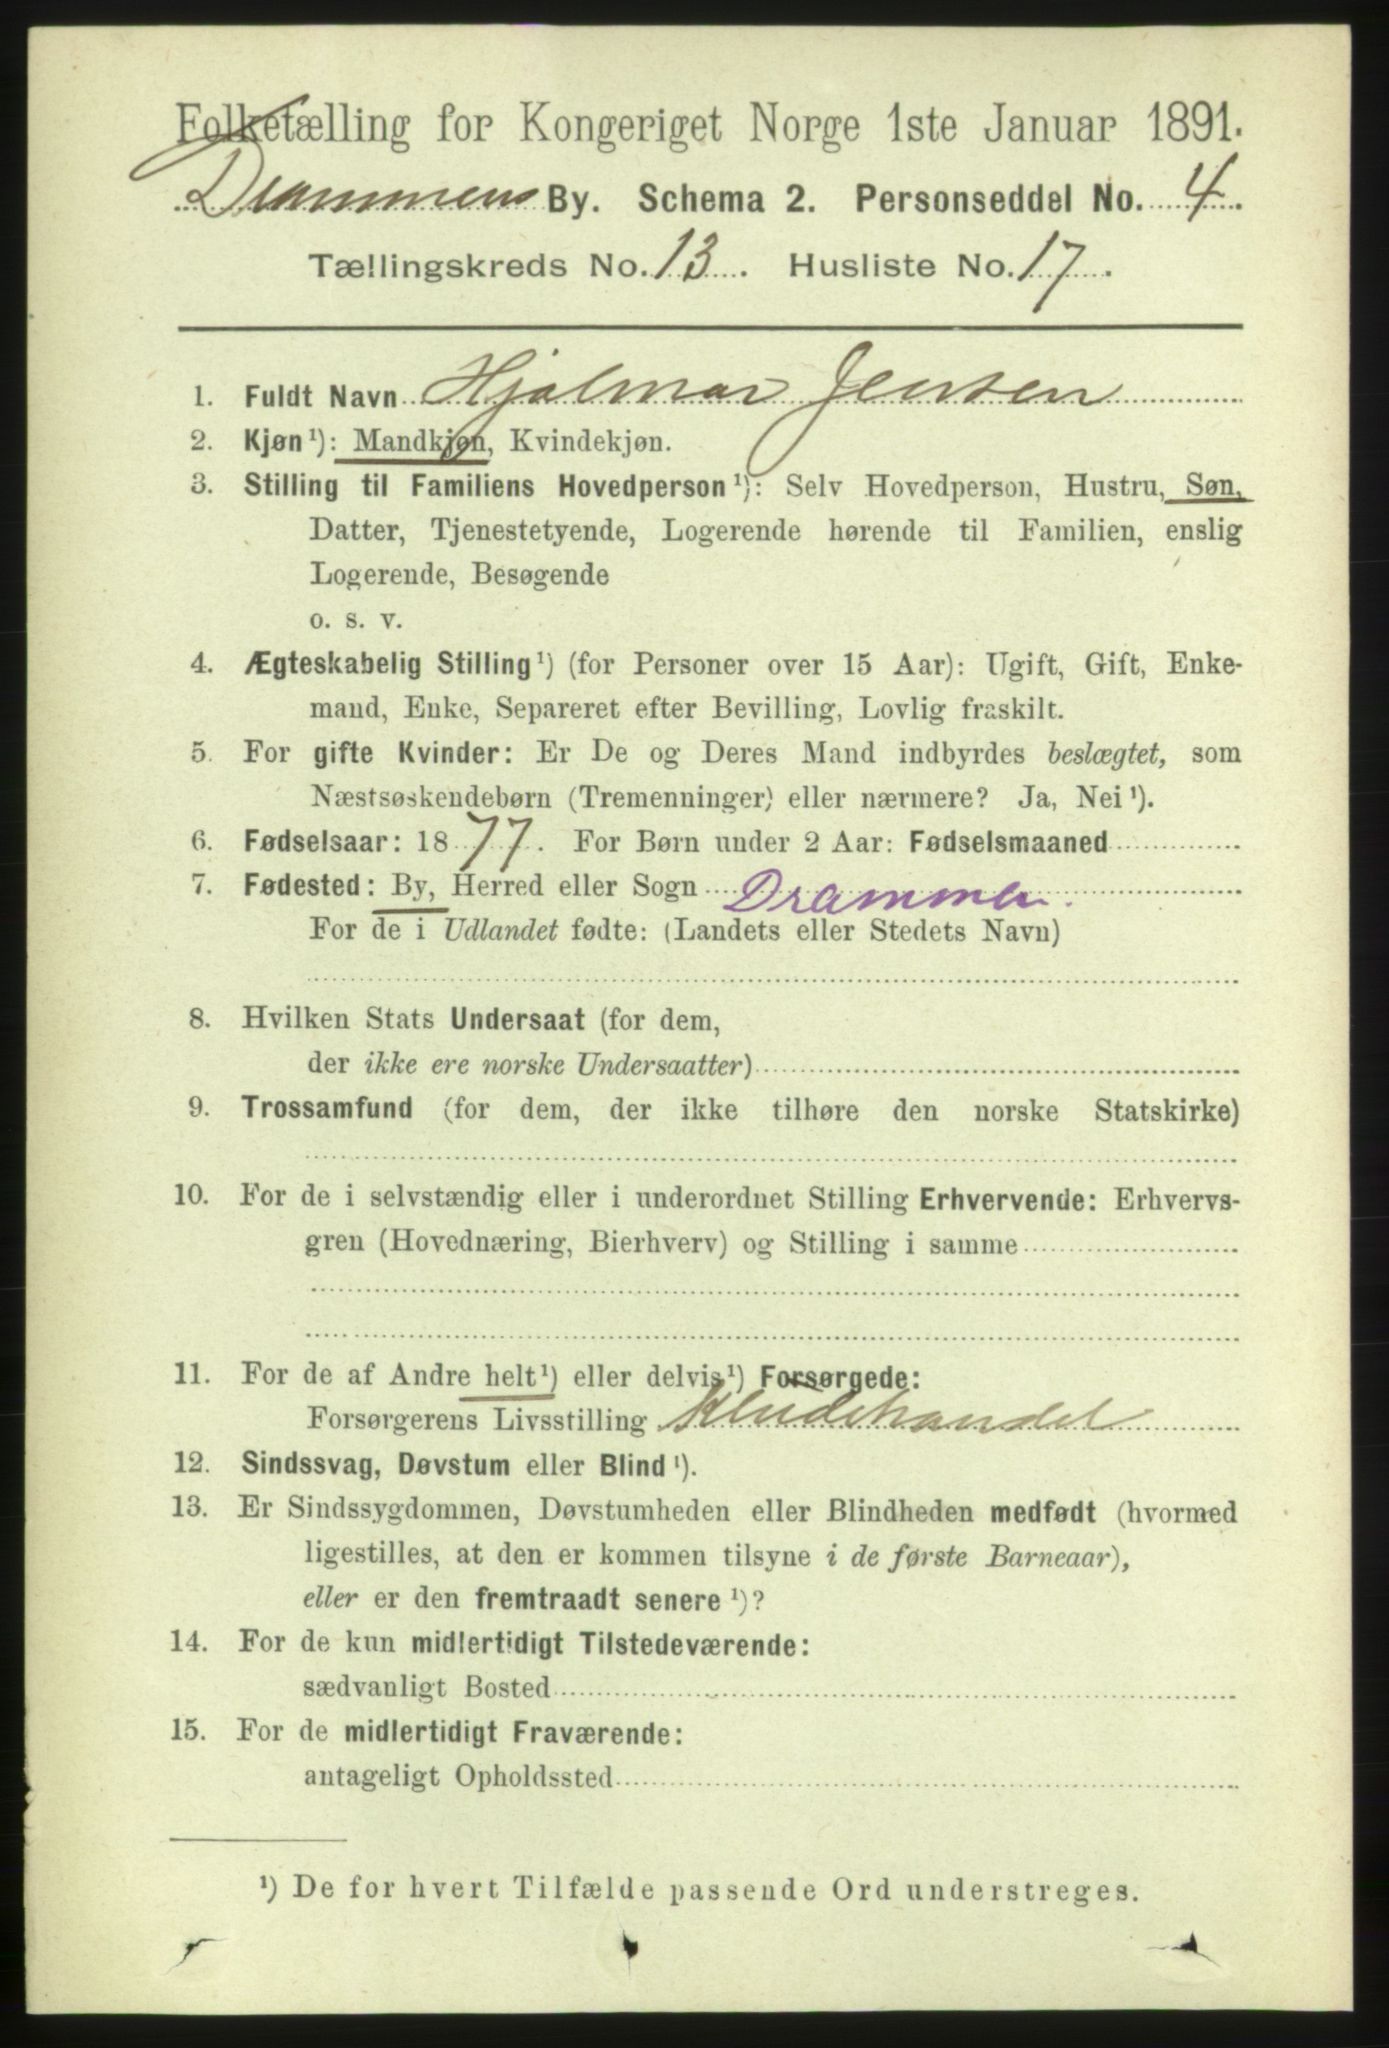 Folketælling for Kongeriget Norge 1ste Januar 1891.
Drammens By. Schema 2. Personseddel No. 4.
Tællingskreds No. 13. Husliste No. 17.
1. Fuldt Navn Hjalmar Jensen
2. Kjøn¹): Mandkjøn, Kvindekjøn.
3. Stilling til Familiens Hovedperson¹): Selv Hovedperson, Hustru, Søn,
Datter, Tjenestetyende, Logerende hørende til Familien, enslig
Logerende, Besøgende
o. s. v.
4. Ægteskabelig Stilling¹) (for Personer over 15 Aar): Ugift, Gift, Enke-
mand, Enke, Separeret efter Bevilling, Lovlig fraskilt.
5. For gifte Kvinder: Er De og Deres Mand indbyrdes beslægtet, som
Næstsøskendebørn (Tremenninger) eller nærmere? Ja, Nei¹).
6. Fødselsaar: 1877. For Børn under 2 Aar: Fødselsmaaned
7. Fødested: By, Herred eller Sogn Drammen.
For de i Udlandet fødte: (Landets eller Stedets Navn)
8. Hvilken Stats Undersaat (for dem,
der ikke ere norske Undersaatter)
9. Trossamfund (for dem, der ikke tilhøre den norske Statskirke)
10. For de i selvstændig eller i underordnet Stilling Erhvervende: Erhvervs-
gren (Hovednæring, Bierhverv) og Stilling i samme
11. For de af Andre helt¹) eller delvis¹) Forsørgede:
Forsørgerens Livsstilling Kludehandel
12. Sindssvag, Døvstum eller Blind¹).
13. Er Sindssygdommen, Døvstumheden eller Blindheden medfødt (hvormed
ligestilles, at den er kommen tilsyne i de første Barneaar),
eller er den fremtraadt senere¹)?
14. For de kun midlertidigt Tilstedeværende:
sædvanligt Bosted
15. For de midlertidigt Fraværende:
antageligt Opholdssted
¹) De for hvert Tilfælde passende Ord understreges.